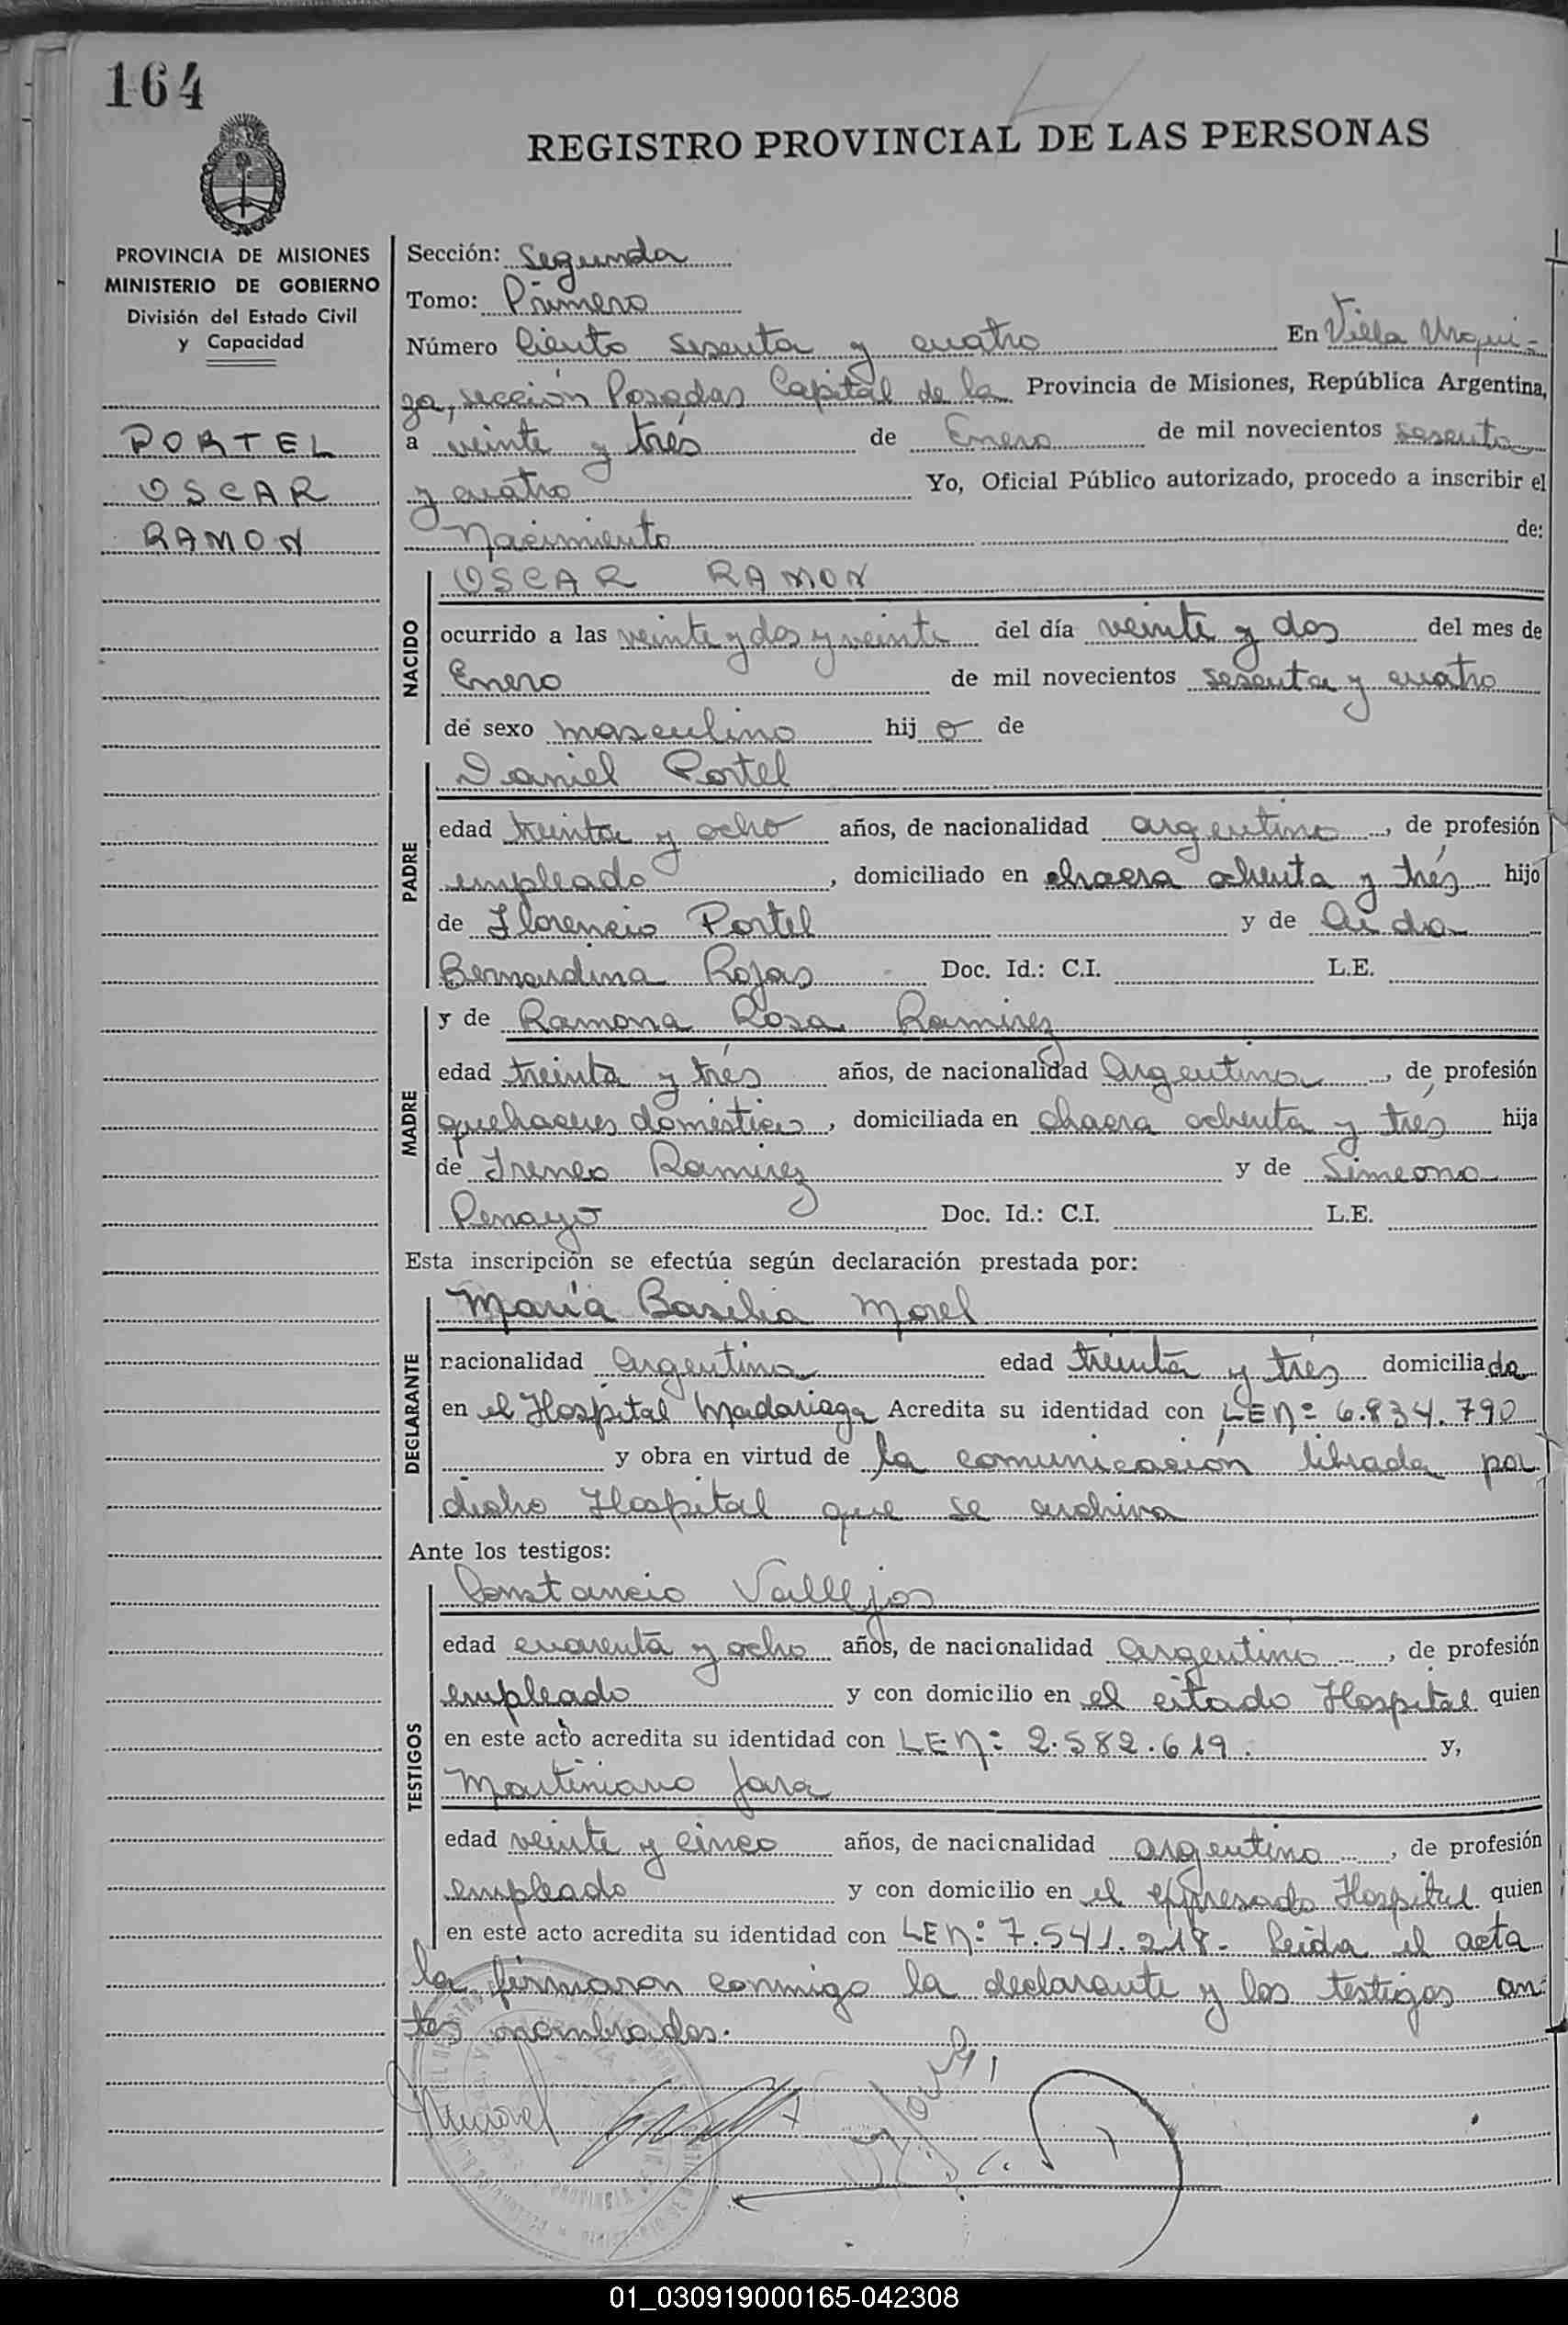 164
REGISTRO PROVINCIAL DE LAS PERSONAS
PROVINCIA DE MISIONES
MINISTERIO DE GOBIERNO
División del Estado Civil
y Capacidad
PORTEL
OSCAR
RAMON
Sección: Segunda
Tomo: Primero
Número Ciento sesenta y cuatro En Villa Urqui-
za, sección Posadas Capital de la Provincia de Misiones, República Argentina,
a veinte y trés de Enero de mil novecientos sesenta
y cuatro Yo, Oficial Público autorizado, procedo a inscribir el
Nacimiento de:
NACIDO
OSCAR RAMON
ocurrido a las veinte y dos y veinte del día veinte y dos del mes de
Enero de mil novecientos sesenta y cuatro
de sexo masculino hijo de
PADRE
Daniel Portel
edad treinta y ocho años, de nacionalidad argentino, de profesión
empleado, domiciliado en chacra ochenta y trés hijo
de Florencio Portel y de Aida
Bernardina Rojas Doc. Id.: C.I. L.E.
MADRE
y de Ramona Rosa Ramirez
edad treinta y trés años, de nacionalidad Argentina, de profesión
quehaceres domésticos, domiciliada en chacra ochenta y trés hija
de Ireneo Ramirez y de Simeona
Penayo Doc. Id.: C.I. L.E.
Esta inscripción se efectúa según declaración prestada por:
DECLARANTE
María Basilia Morel
nacionalidad argentina edad treinta y trés domiciliada
en el Hospital Madariaga Acredita su identidad con LEN: 6.834.790
y obra en virtud de la comunicación librada por
dicho Hospital que se archiva
Ante los testigos:
TESTIGOS
Constancio Valllejos
edad cuarenta y ocho años, de nacionalidad argentino, de profesión
empleado y con domicilio en el citado Hospital quien
en este acto acredita su identidad con LEN: 2.582.619. y,
Martiniano Jara
edad veinte y cinco años, de nacionalidad argentino, de profesión
empleado y con domicilio en el expresado Hospital quien
en este acto acredita su identidad con LEN: 7.541.218- Leida el acta
la firmaron conmigo la declarante y los testigos an-
tes nombrados.
01_030919000165-042308